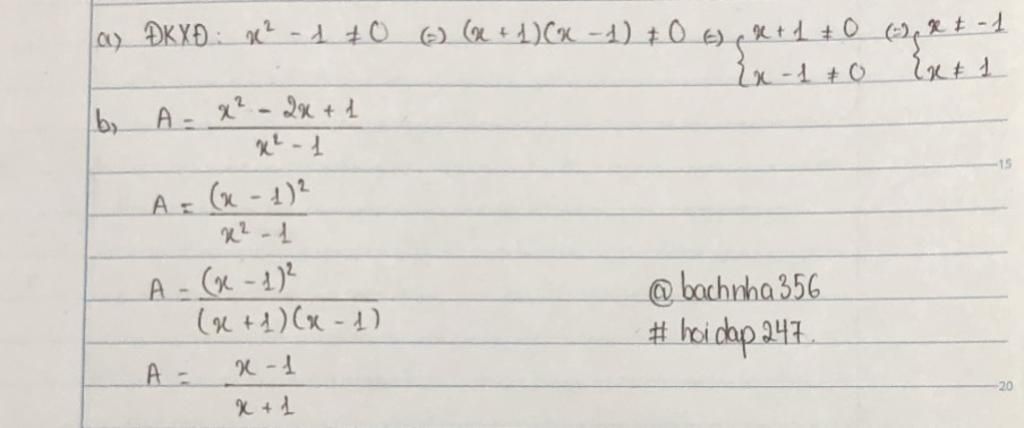 a) ĐKXĐ: x² - 1 ≠ 0 (=) (x + 1)(x - 1) ≠ 0 (=) { x + 1 ≠ 0 (=) { x ≠ -1
x - 1 ≠ 0 x ≠ 1
b, A = (x² - 2x + 1) / (x² - 1)
15
A = (x - 1)² / (x² - 1)
A = (x - 1)² / ((x + 1)(x - 1))
@bachnha356
# hoidap247.
A = (x - 1) / (x + 1)
20